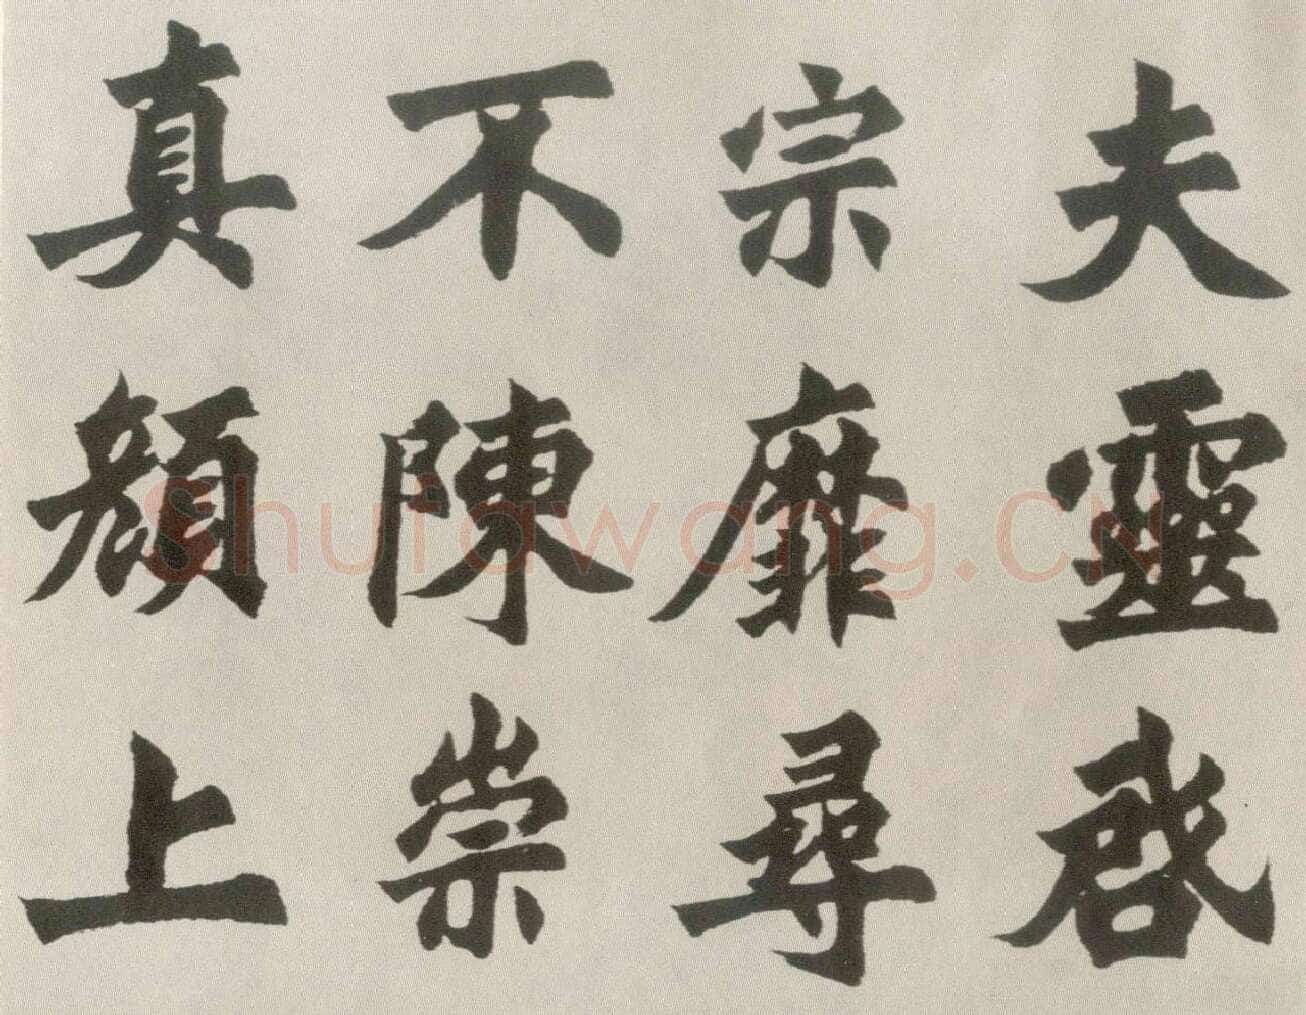 夫靈啓
宗靡尋
不陳崇
真顔上
Shufawang.CN